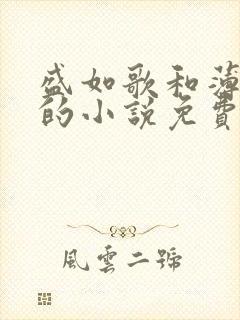 盛如歌和薄
的小說免費
風雲二號